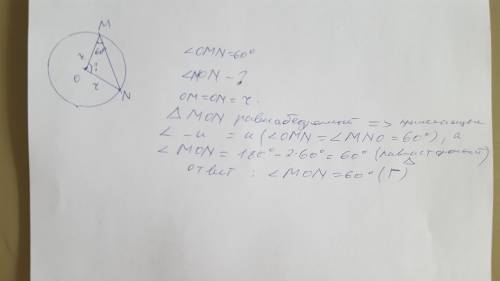 M
60°
r
?
O
r
N
∠OMN=60°
∠MON – ?
OM=ON=r.
△ MON равнобедренный => прилежащие
∠ -и = и (∠OMN=∠MNO=60°), а
∠ MON = 180° – 2·60° = 60° (равносторонний)
△
ответ : ∠MON=60° (Г)